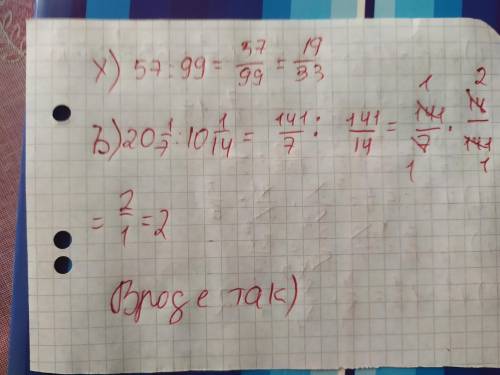 X) 57 : 99 = 57/99 = 19/33
Ъ) 20 1/7 : 10 1/14 = 141/7 : 141/14 = 141/7 · 14/141
1 2
1 1
= 2/1 = 2
Вроде так)